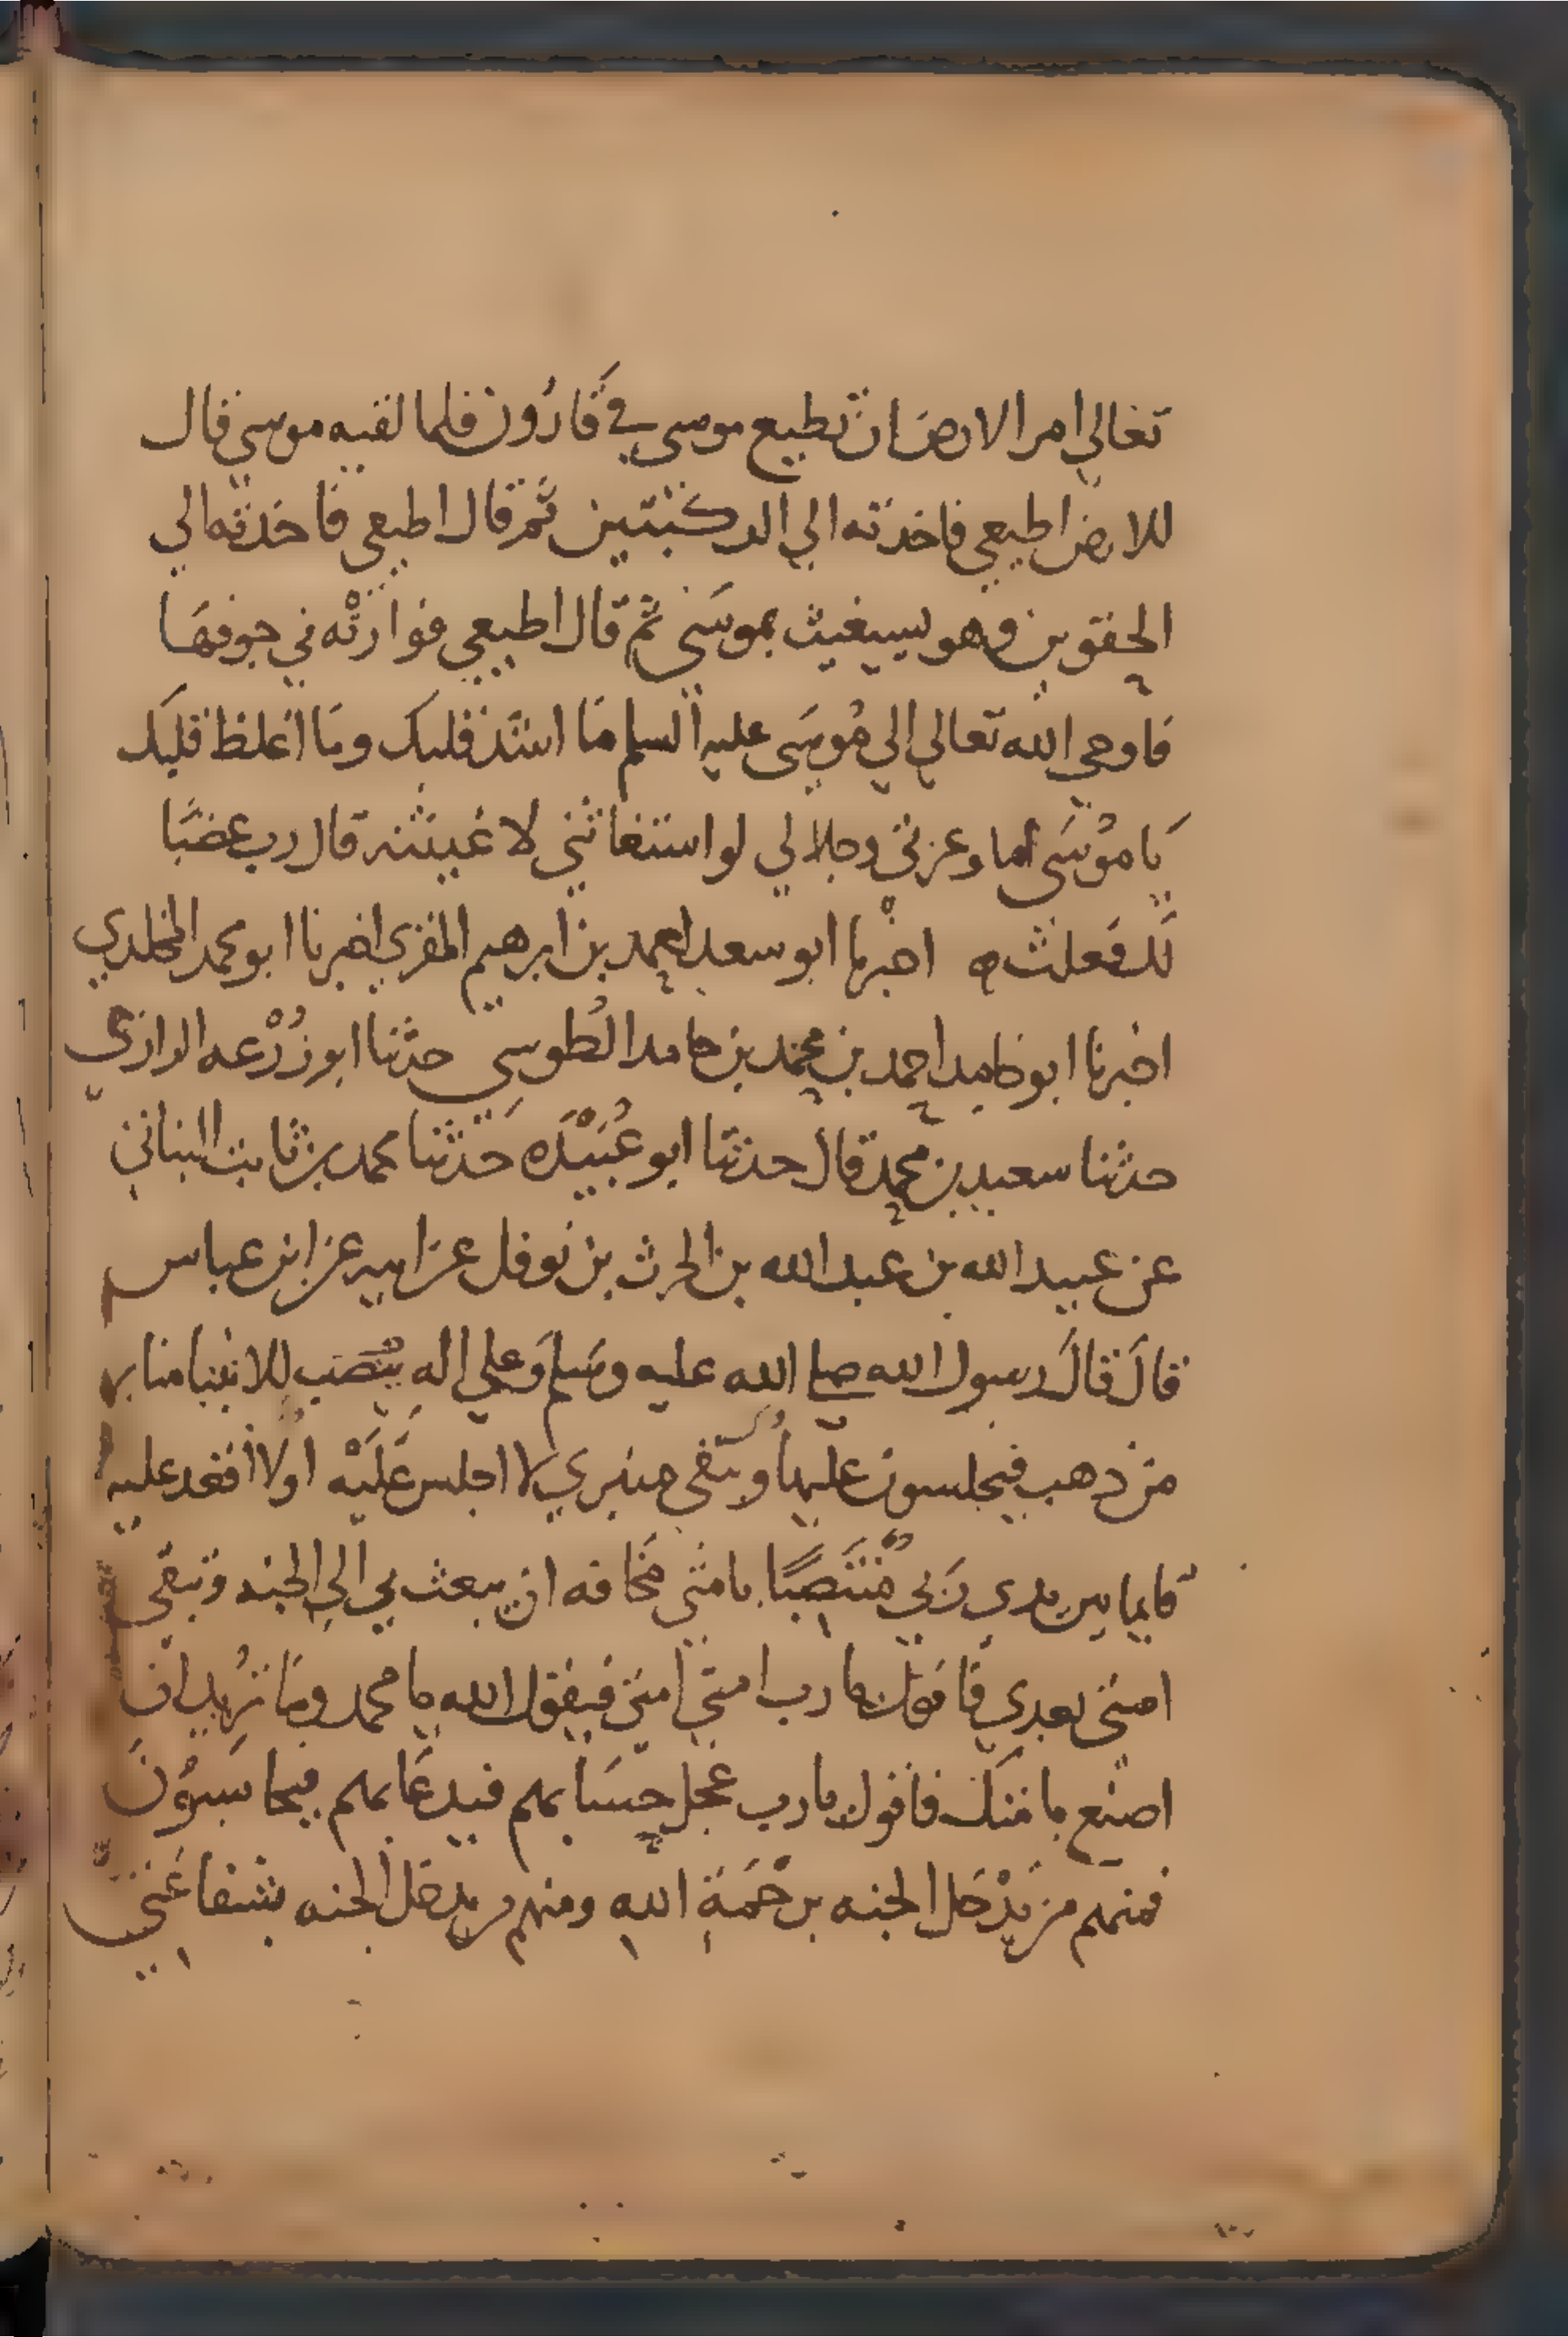 تعالي امر الارض ان تطيع موسى في قارُون فلما لقيه موسي قال
للارض اطيعي فاخذته الي الركبتين ثم قال اطيعي فاخذته الي
الحقوين وهو يستغيث بموسَى ثم قال اطيعي فوارتْه في جوفهَا
فاوحي الله تعالي الي مُوسَى عليه السلم مَا اشد قلبك ومَا اغلظ قلبك
يَا موْسَى اما وعزتي وجلالي لو استغاثني لاغيثته قال رب غضبًا
لك فعلت ه اخبرنا ابو سعد احمد بن ابرهيم المقري اخبرنا ابو محمد المخلدي
اخبرنا ابو حامد احمد بن محمد بن حامد الطُوسي حدثنا ابو زُرْعه الرازي
حدثنا سعيد بن محمد قال حدثنا ابو عُبَيْدَه حَدثنا محمد بن ثابت البناني
عن عبيد الله بن عبد الله بن الحرث بن نوفل عن ابيه عن ابن عباس
قالَ قالَ رسول الله صلي الله عليه وسَلم وَعلي اله يُنْصَب للانبيا منابر
من ذهب فيجلسون عليها ويبقي منبري لا اجلس عَلَيْه اولا اقعد عليه
قايما بين يدي رَبي مُنْتَصِبًا بامتي مَخافه ان يبعث بي الي الجنه وتبقي
امتي بعدي فاقول يا رب امتي امتي فيقول الله يا محمد ومَا تُريد ان
اصنع بامتك فاقول يا رب عجل حِسَابهم فيدعَا بهم فيحاسَبوُنَ
فمنهم من يَدْخل الجنه برَحْمَةِ اللهِ ومنهم من يدخل الجنه بشفاعَتي